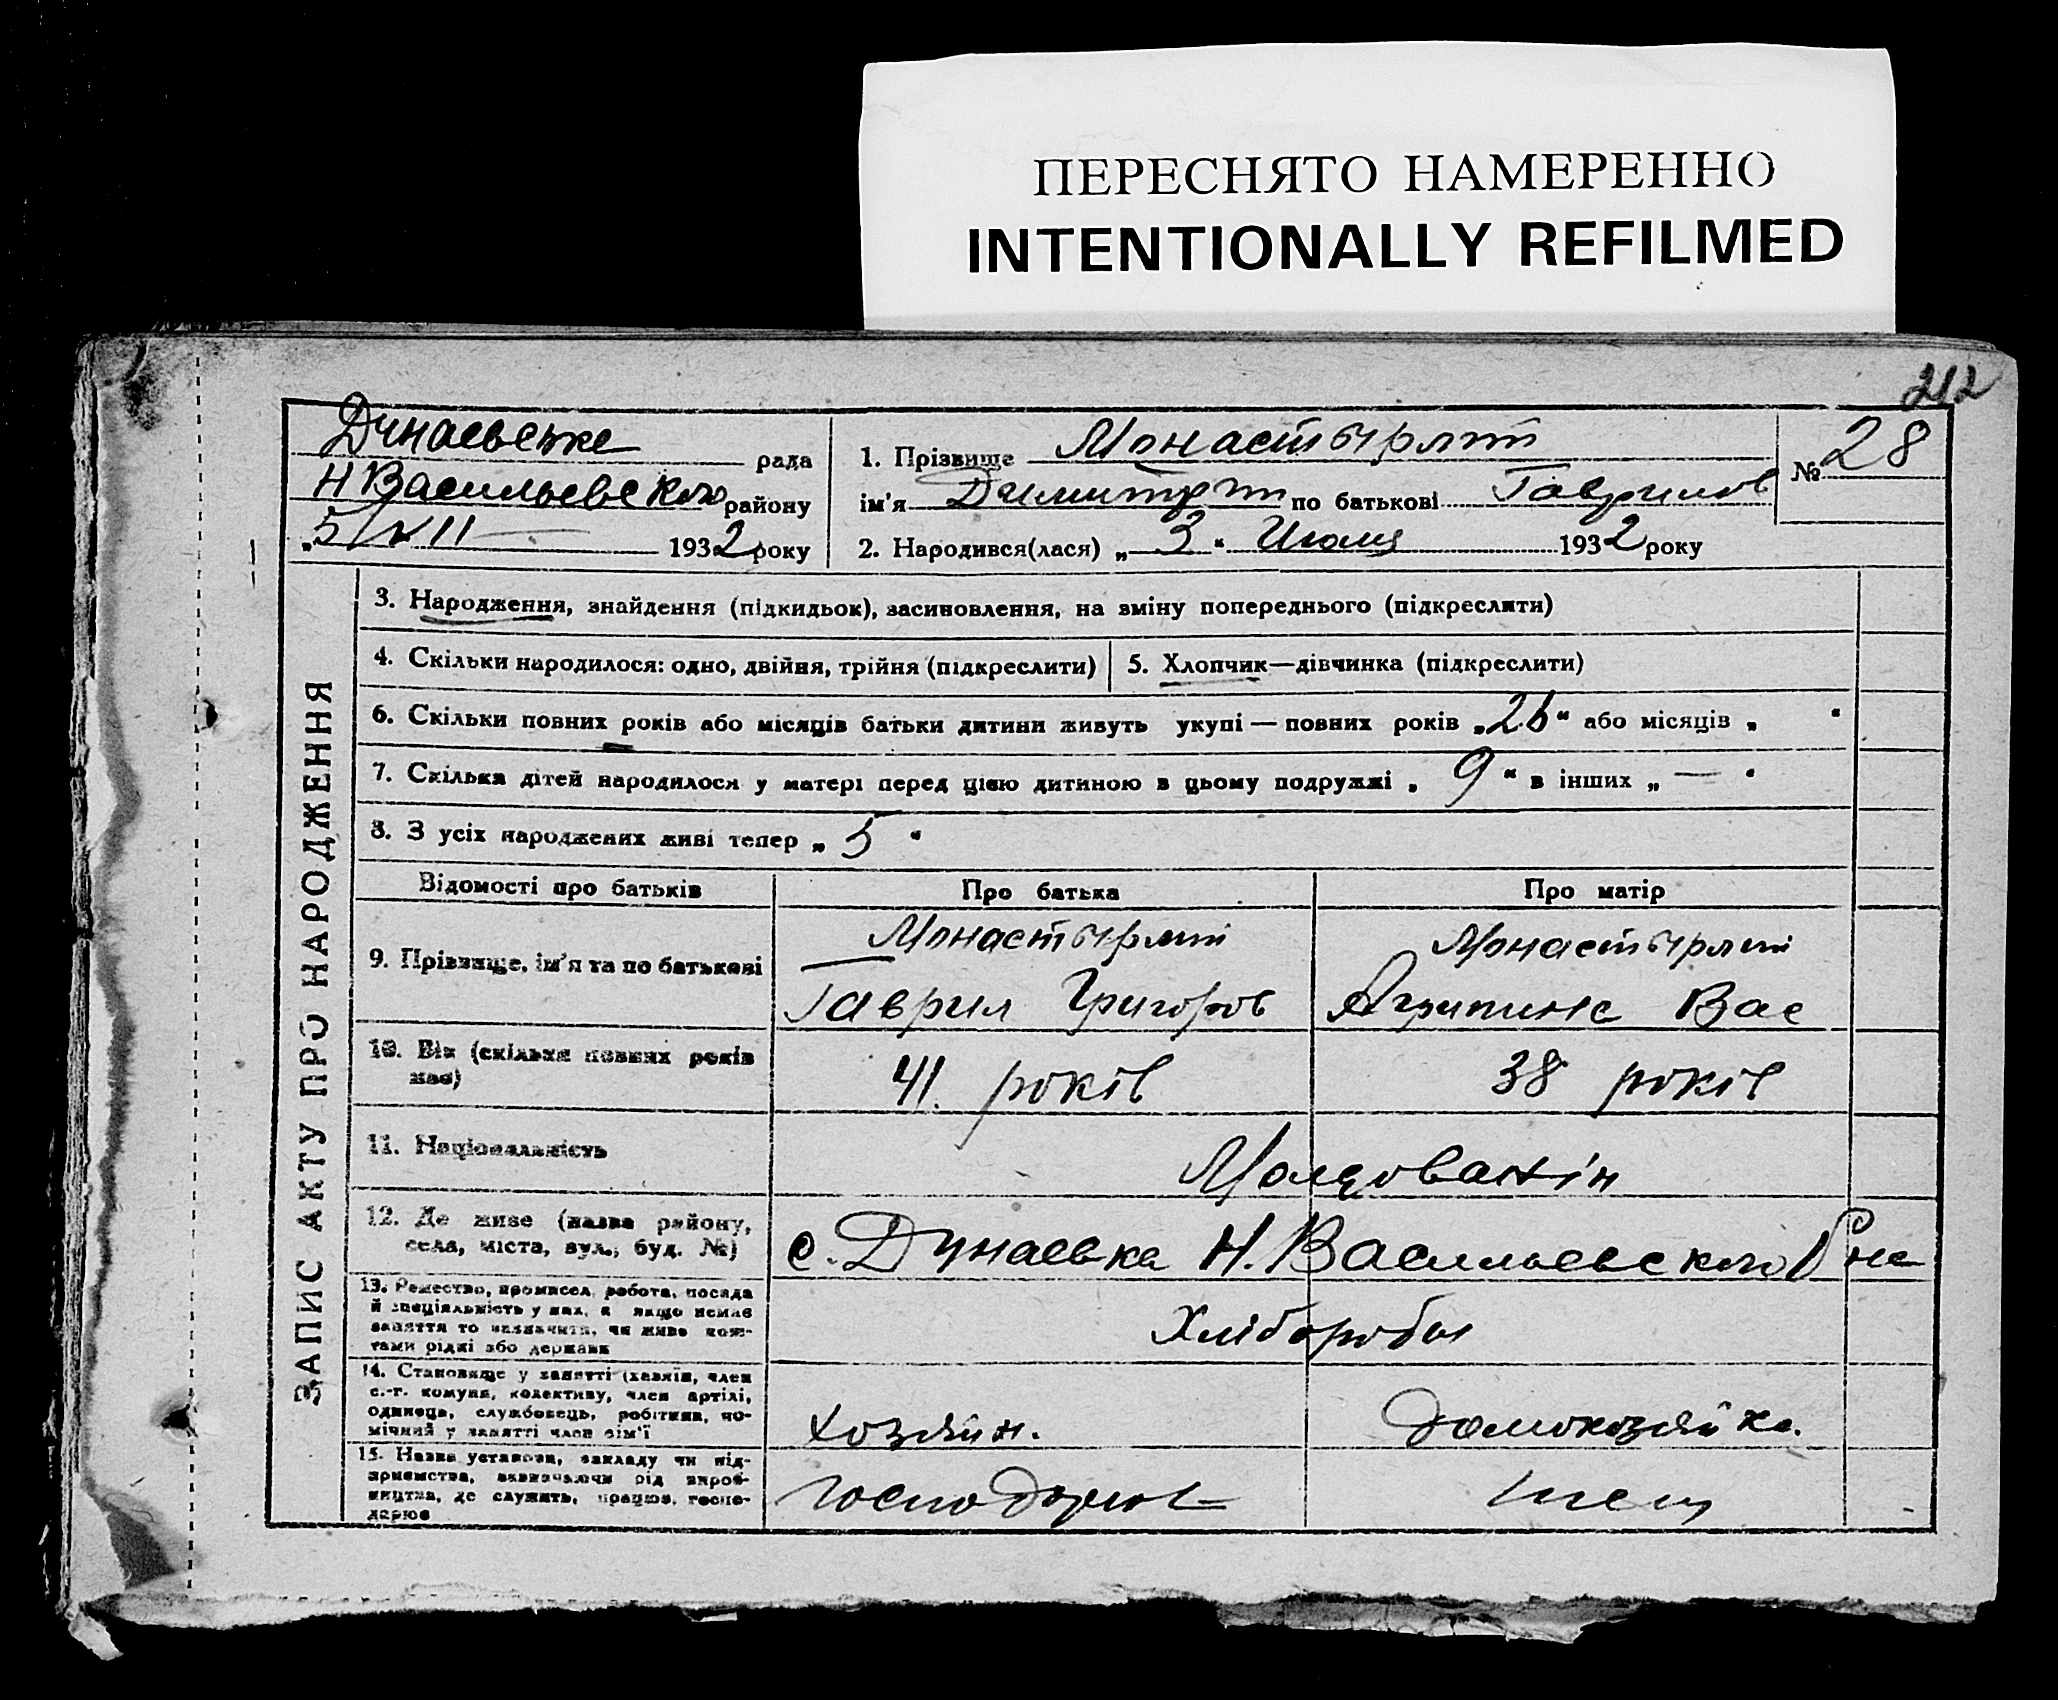 ПЕРЕСНЯТО НАМЕРЕННО
INTENTIONALLY REFILMED
212
Дунаевське рада
Н Васильевского району
„5/VII 1932 року
1. Прізвище Монастырлі
ім'я Димитри по батькові Гаврилов
№ 28
2. Народився(лася) „3“ Июля 1932 року
ЗАПИС АКТУ ПРО НАРОДЖЕННЯ
3. Народження, знайдення (підкидьок), засиновлення, на зміну попереднього (підкреслити)
4. Скільки народилося: одно, двійня, трійня (підкреслити)
5. Хлопчик—дівчинка (підкреслити)
6. Скільки повних років або місяців батьки дитини живуть укупі — повних років „26“ або місяців „ “
7. Скільки дітей народилося у матері перед цією дитиною в цьому подружжі „9“ в інших „—“
8. З усіх народжених живі тепер „5“
Відомості про батьків
Про батька
Про матір
9. Прізвище, ім'я та по батькові
Монастырлі
Гаврил Григоров
Монастырлі
Агрипина Вас
10. Вік (скільки повних років має)
41. років
38 років
11. Національність
Молдованін
12. Де живе (назва району,
села, міста, вул., буд. №)
с. Дунаевка Н. Васильевского Р на
13. Ремество, промисел, робота, посада
й спеціяльність у них, а якщо немає
заняття то зазначити, чи живе кош-
тами рідні або держави
Хлібороби
14. Становище у занятті (хазяїн, член
с.-г. комуни, колективу, член артілі,
одинець, службовець, робітник, по-
мічний у занятті член сім'ї
хозяин.
домохозяйка.
15. Назва установи, закладу чи під-
приємства, зазначаючи рід вироб-
ництва, де служить, працює, госпо-
дарює